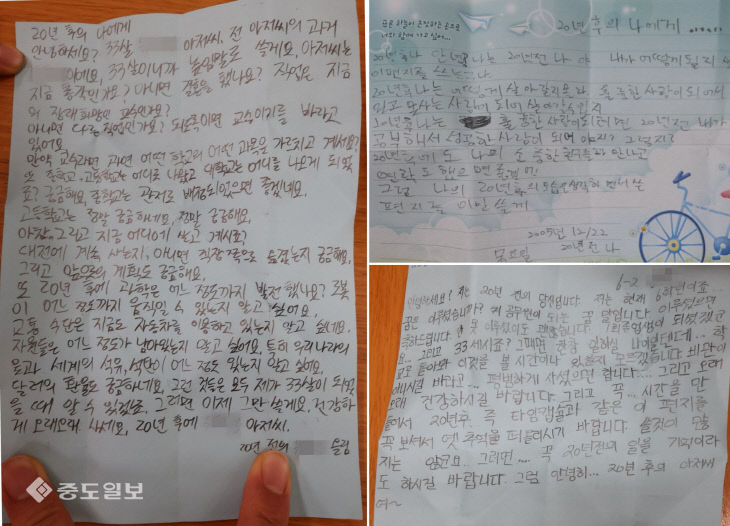 20년 후의 나에게
안녕하세요? 33살 아저씨. 전 아저씨의 과거
아이에요. 33살이니까 높임말로 쓸게요. 아저씨는
지금 총각인가요? 아니면 결혼을 했나요? 직업은 지금
의 장래희망인 교수인가요?
아니면 다른 직업인가요? 되도록이면 교수이기를 바라고
있어요.
만약 교수라면 과연 어떤 학교의 어떤 과목을 가르치고 계세요?
또 중학교, 고등학교는 어디로 나왔고 대학교는 어디를 나오게 되었
죠? 궁금해요. 중학교는 관저로 배정되었으면 좋겠네요.
고등학교는 정말 궁금하네요. 정말 궁금해요.
아참, 그리고 지금 어디에 살고 계시죠?
대전에 계속 사는지, 아니면 직장 쪽으로 옮겼는지 궁금해요.
그리고 앞으로의 계획도 궁금해요.
또 20년 후에 과학은 어느 정도까지 발전했나요? 로봇
이 어느 정도까지 움직일 수 있는지 알고 싶어요.
교통 수단은 지금도 자동차를 이용하고 있는지 알고 싶네요.
자원들은 어느 정도가 남아있는지 알고 싶어요. 특히 우리나라의
물과 세계의 석유, 석탄이 어느 정도 있는지 알고 싶어요.
달러의 환율도 궁금하네요. 그런 것들은 모두 제가 33살이 되었
을 때 알 수 있겠죠. 그러면 이제 그만 쓸게요. 건강하
게 오래오래 사세요. 20년 후에 아저씨.
20년 전의 올림
중도일보
푸른 하늘이
20년 후의 나에게
20년 후 나 안녕 나는 20년 전 나야 내가 어떻게 될지
이 편지를 쓰는구나
20년 후 나는 어떻게 살아갈지 모르
20년 후 나는 훌륭한 사람이 되려면 20년 전 내가
공부해서 성공한 사람이 되어야지? 그렇지?
20년 후에도 나의 소중한 친구들과 만나고
연락도 했으면 좋겠어!
그럼 나의 20년 후의 모습을 생각하면서 쓴
편지를 이만 쓸게
2005년 12/22
목요일 20년 전 나
6-2
안녕하세요? 저는 20년 전의 당신입니다. 저는 현재 6학년이죠...
꿈은 이루셨습니까? 제 공무원이 되는 꿈 말입니다. 이루셨으면
축하드립니다. 못 이루셨어도 괜찮습니다.
요... 그리고 33세시죠? 그때면 한참 일하실 나이일텐데... 학
교로 돌아와 이것을 볼 시간이나 있을지 모르겠습니다. 비관이
마시길 바라고... 평범하게 사셨으면 합니다... 그리고 오래
오래 건강하시길 바랍니다. 그리고 꼭... 시간을 만
들어서 20년후, 즉 타임캡슐과 같은 이 편지를
꼭 보셔서 옛 추억을 떠올리시기 바랍니다. 솔직히 많
지는 않군요.. 그러면... 꼭 20년전의 일을 기억이라
도 하시길 바랍니다. 그럼 안녕히... 20년 후의 아저씨
여~